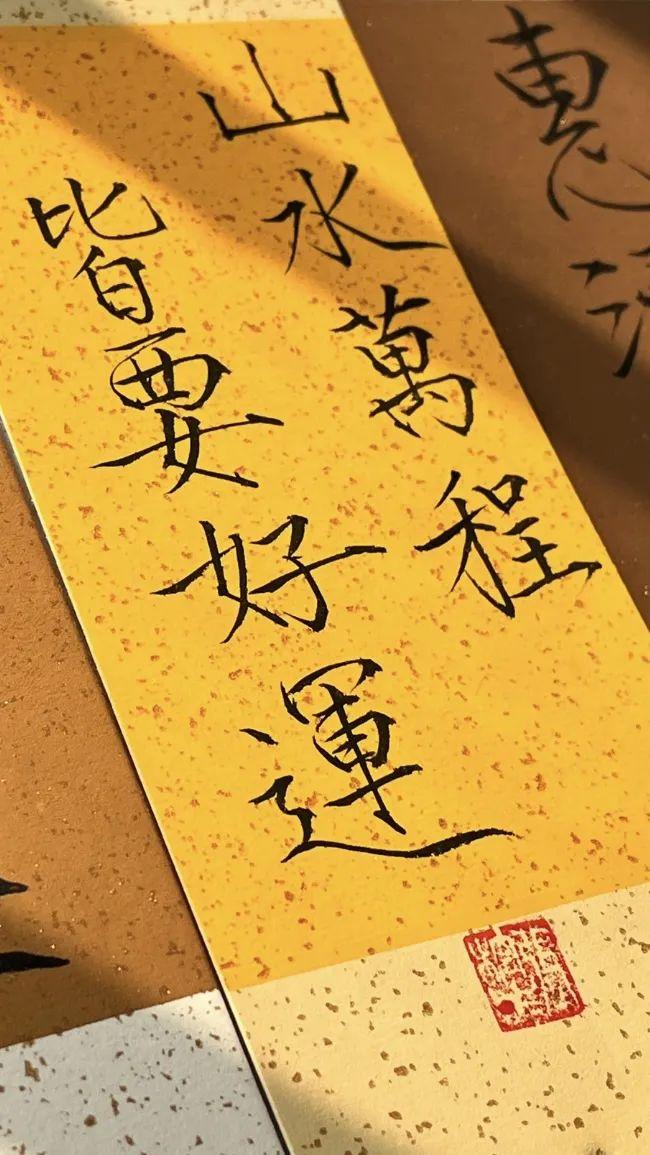 山水萬程
皆要好運